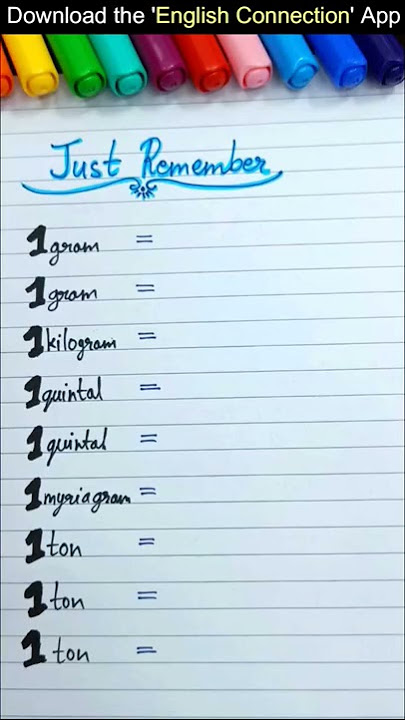 Download the 'English Connection' App
Just Remember
1 gram =
1 gram =
1 kilogram =
1 quintal =
1 quintal =
1 myriagram =
1 ton =
1 ton =
1 ton =